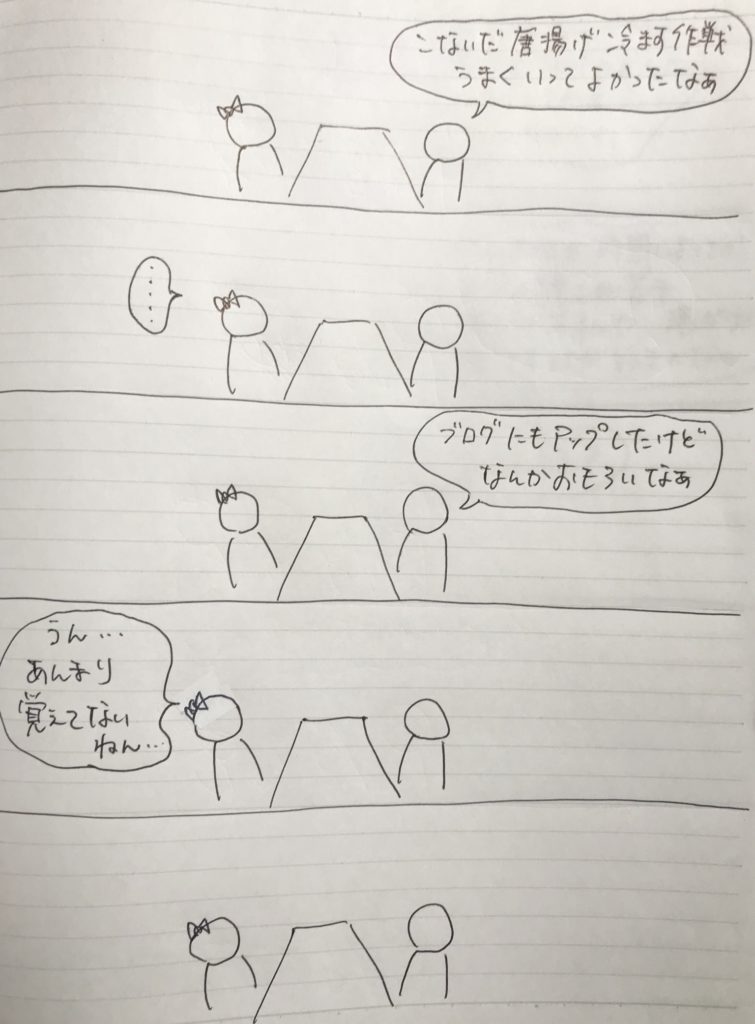 こないだ唐揚げ冷ます作戦
うまくいってよかったなぁ
・・・・・
ブログにもアップしたけど
なんかおもろいなぁ
うん…
あんまり
覚えてない
ねん…